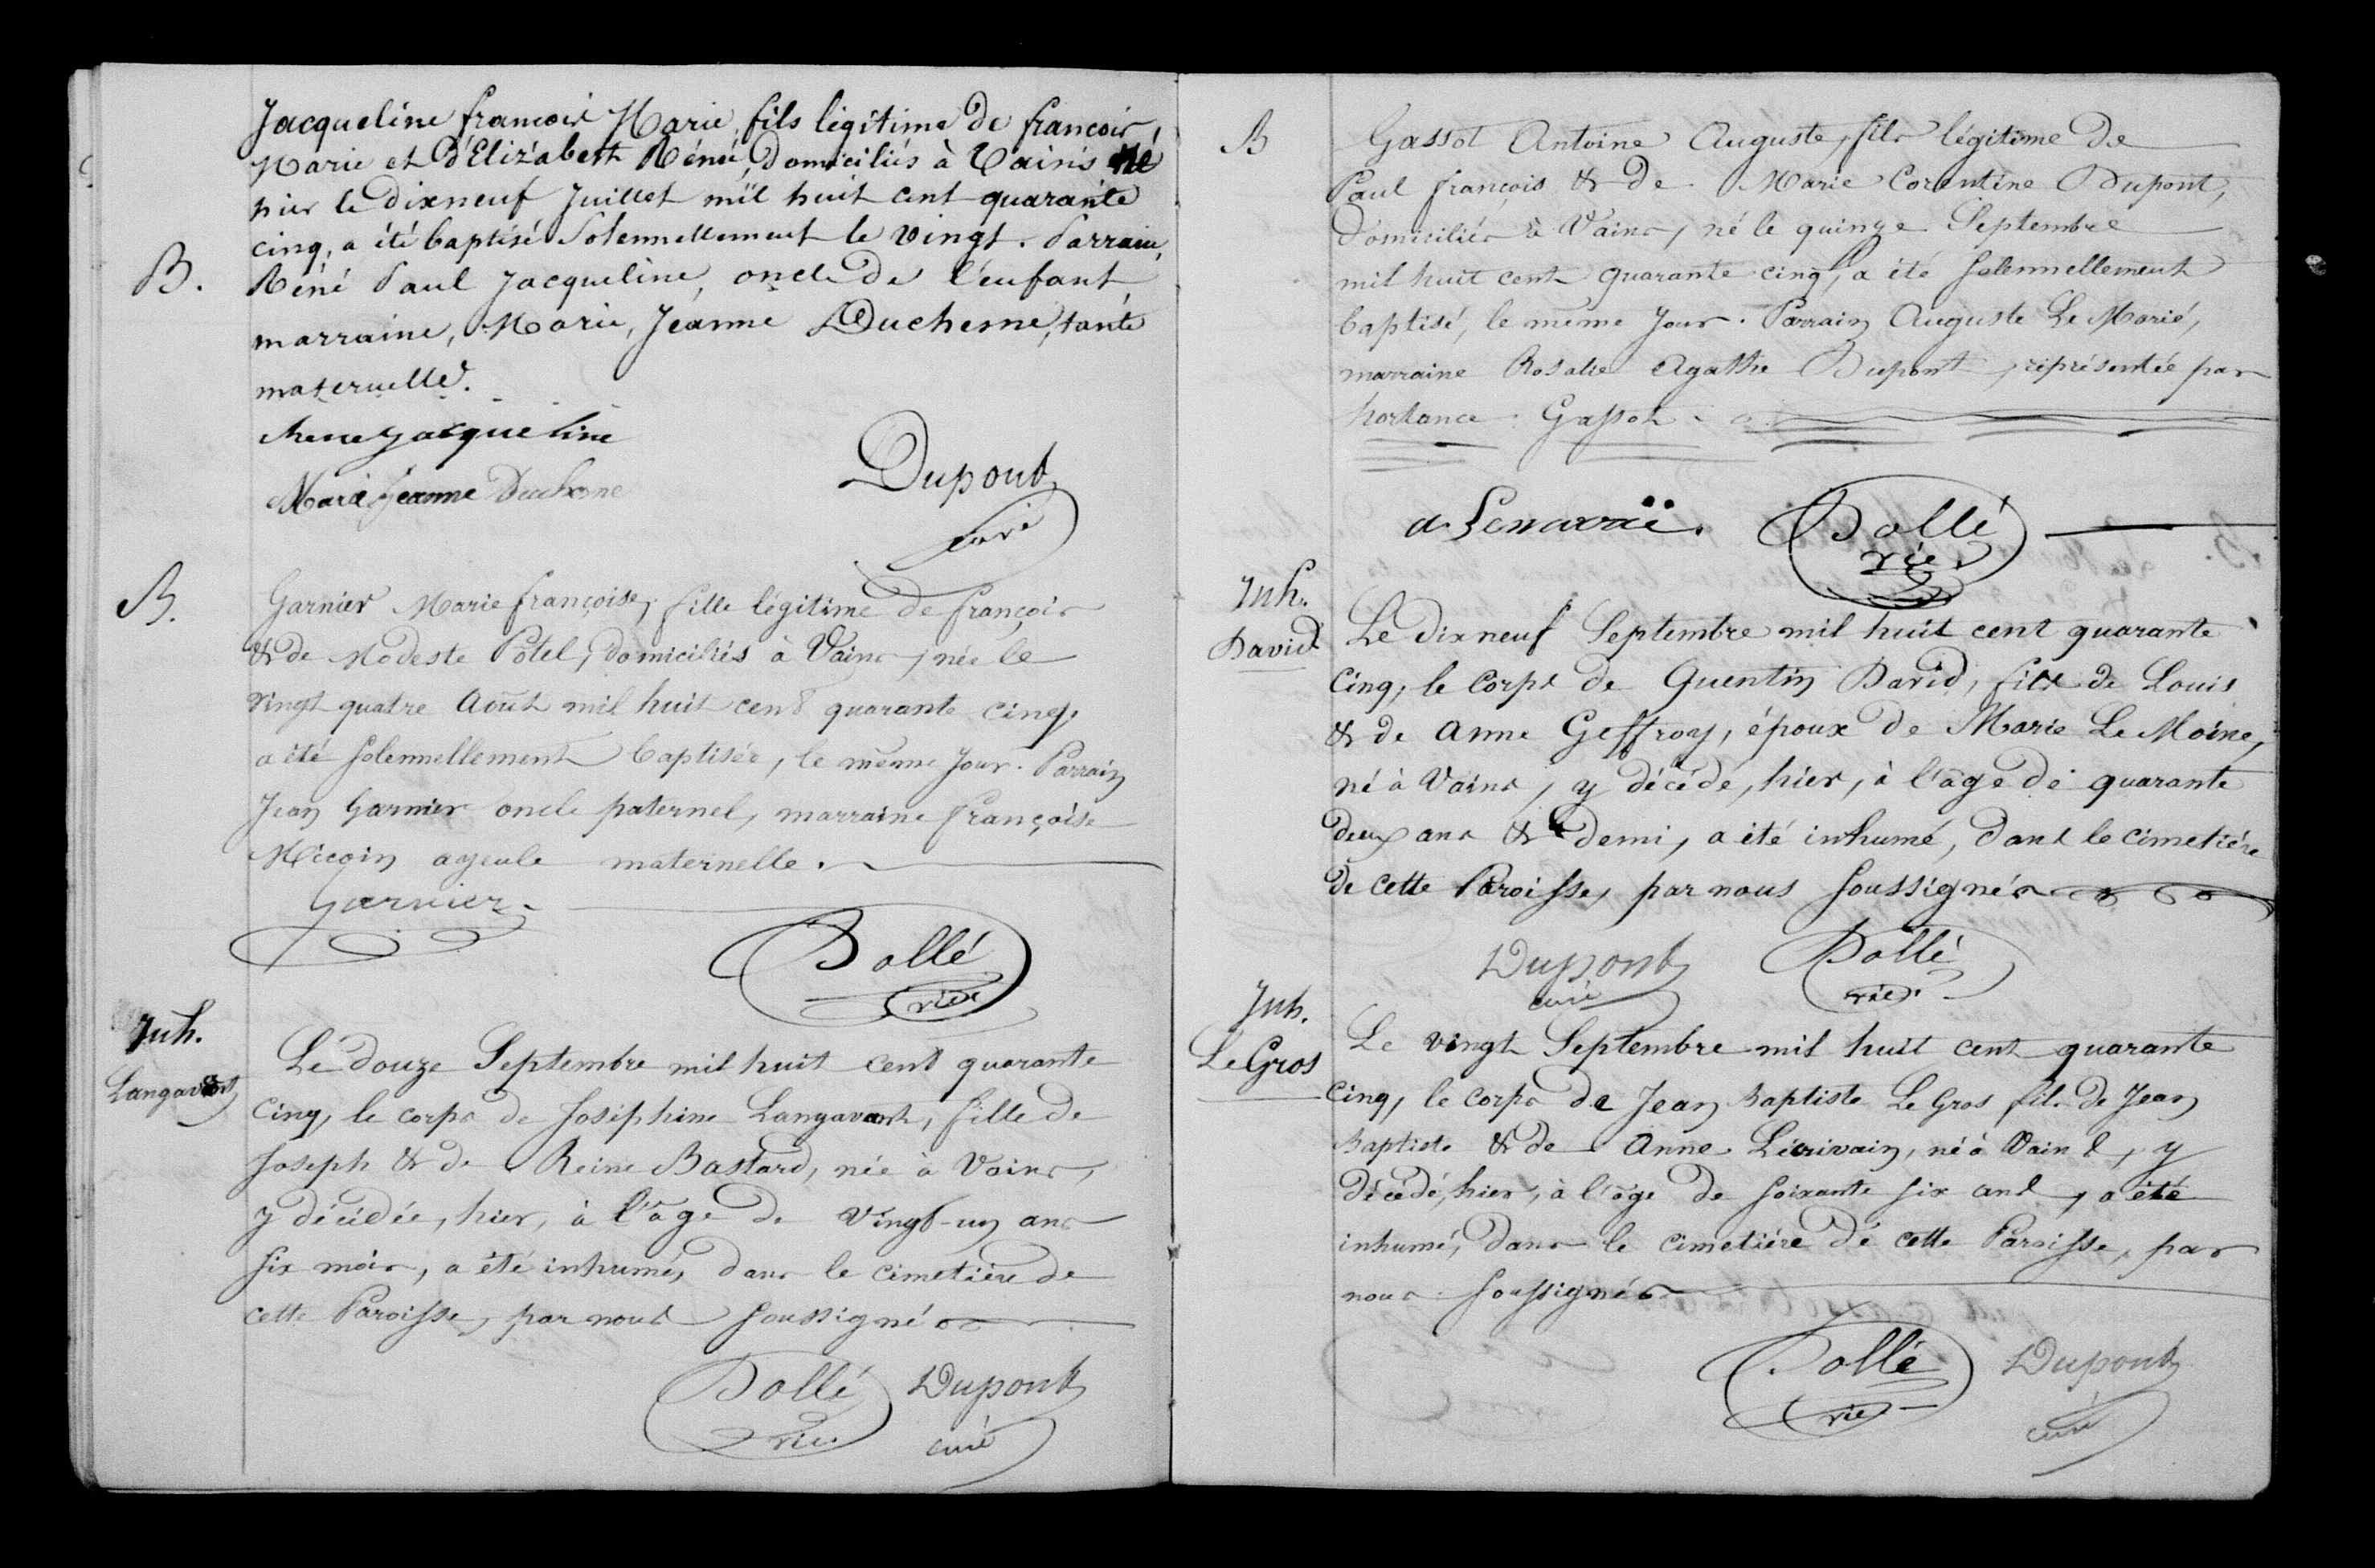 Jacqueline francois Marie, fils légitime de francois
Marie et d'Elizabeth Réné, domiciliés à Vains né
hier le dixneuf Juillet mil huit cent quarante
cinq, a été baptisé Solennellement le vingt. Parrain,
B.
Réné Paul Jacqueline, oncle de l'enfant,
marraine, Marie, Jeanne Duchesne, tante
maternelle.
Rene Jacqueline
Marie Jeanne Duchesne
Dupont
curé
B.
Garnier Marie françoise, fille légitime de françois
& de Modeste Potel, domiciliés à Vains, née le
vingt quatre Août mil huit cent quarante cinq,
a été solennellement baptisée, le même jour. Parrain
Jean Garnier oncle paternel, marraine françoise
Micoin ayeule maternelle.
Garnier
Dollé
vic
Inh.
Langavant
Le douze Septembre mil huit cent quarante
cinq, le corps de Joséphine Langavant, fille de
Joseph & de Reine Bastard, née à Vains,
y décédée, hier, à l'âge de vingt-un ans
six mois, a été inhumé, dans le cimetière de
cette Paroisse, par nous soussignés
Dollé
vic.
Dupont
curé
B
Gassot Antoine Auguste, fils légitime de
Paul françois & de Marie Corentine Dupont,
domiciliés à Vains, né le quinze Septembre
mil huit cent quarante cinq, a été solennellement
baptisé, le même jour. Parrain Auguste Le Marié,
marraine Rosalie Agathe Dupont, représentée par
hortance Gassot
Dollé
vic
Inh.
David
Le dix neuf Septembre mil huit cent quarante
cinq, le corps de Quentin David, fils de Louis
& de Anne Geffroy, époux de Marie Le Moine,
né à Vains, y décédé, hier, à l'âge de quarante
deux ans & demi, a été inhumé, dans le cimetière
de cette Paroisse, par nous soussignés
Dupont
curé
Dollé
vic.
Inh.
Le Gros
Le vingt Septembre mil huit cent quarante
cinq, le corps de Jean Baptiste Le Gros fils de Jean
Baptiste & de Anne Lécrivain, né à Vains, y
décédé, hier, à l'âge de soixante six ans, a été
inhumé, dans le cimetière de cette Paroisse, par
nous soussignés
Dollé
vic
Dupont
curé